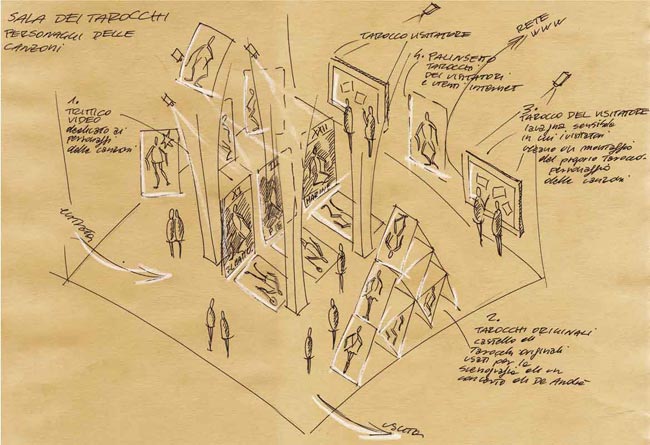 SALA DEI TAROCCHI
PERSONAGGI DELLE
CANZONI
TAROCCO VISITATORE
RETE
WWW
4. PALINSESTO
TAROCCHI
DEI VISITATORI
E UTENTI INTERNET
3.
TAROCCO DEL VISITATORE
lavagna sensibile
in cui i visitatori
creano un montaggio
del proprio Tarocco-
personaggio
delle canzoni
1.
TRITTICO
VIDEO
dedicato ai
personaggi
delle canzoni
entrata
XXII
XII
2.
TAROCCHI ORIGINALI
castello di
Tarocchi originali
usati per la
scenografia di un
concerto di De André
uscita